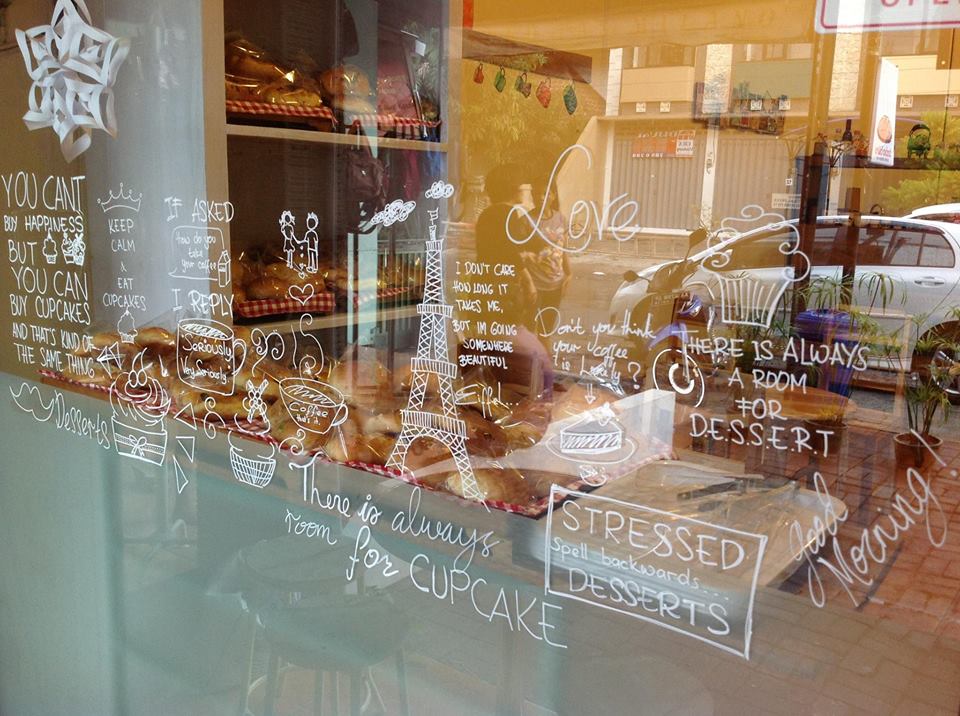 YOU CANT
BUY HAPPINESS
BUT
YOU CAN
BUY CUPCAKES
AND THAT'S KIND OF
THE SAME THING
Desserts
KEEP
CALM
&
EAT
CUPCAKES
IF ASKED
how do you
take
your coffee
I REPLY
Seriously
Very Seriously
Coffee
that's it.
There is always
room for CUPCAKE
I DON'T CARE
HOW LONG IT
TAKES ME,
BUT IM GOING
SOMEWHERE
BEAUTIFUL
Eiffel...
Love
Don't you think
your coffee
is lonely?
THERE IS ALWAYS
A ROOM
FOR
D.E.S.S.E.R.T
STRESSED
Spell backwards....
DESSERTS
Good
Morning!